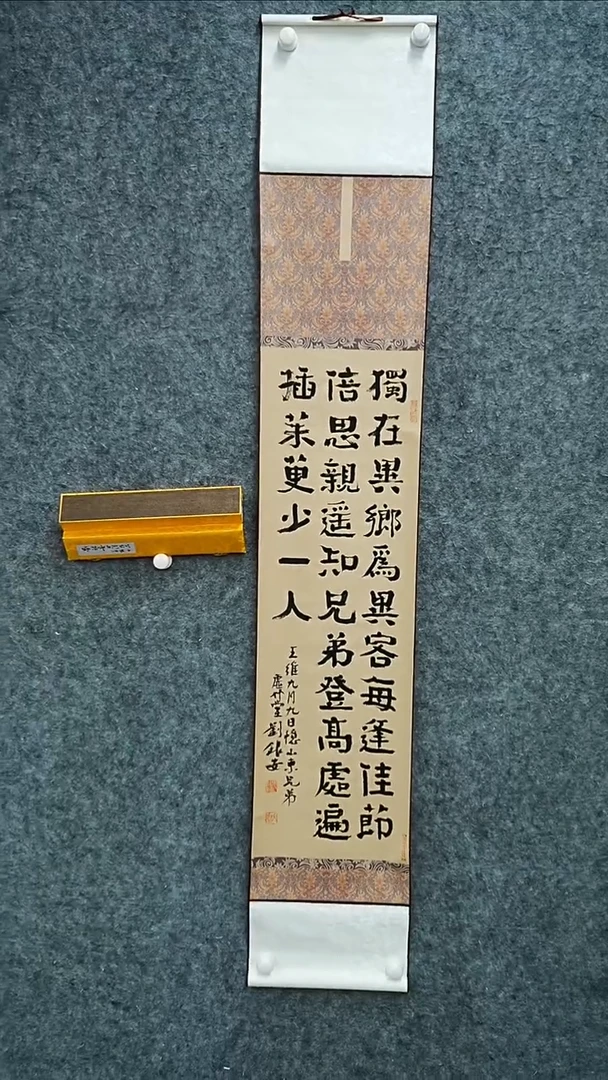 獨在異鄉為異客每逢佳節
倍思親遥知兄弟登高處遍
插茱萸少一人
王維九月九日憶山東兄弟
劉銀安